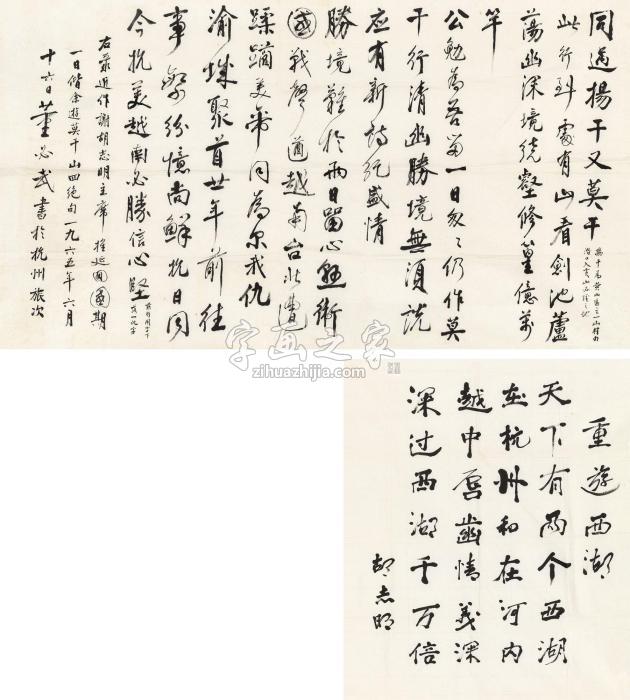 同過揚干又莫干
此行到處有山看劍池蘆
蕩幽深境繞壑修篁億萬
竿
公勉為吾留一日匆匆仍作莫
干行清幽勝境無須說
應有新詩紀盛情
勝境難於兩日留心懸衛
國戰聲遒越南台北遭
蹂躪美帝同為尔我仇
渝城聚首廿年前往
事繁紛憶尚鮮抗日同
今抗美越南必勝信心堅
右最近作謝胡志明主席推迟國期
一日偕余遊莫干山四絕句一九六五年六月
十六日董必武書於杭州旅次
重遊西湖
天下有兩个西湖
在杭州和在河内
越中唇齒情義深
深过西湖千万倍
胡志明
字画之家
zihuazhijia.com